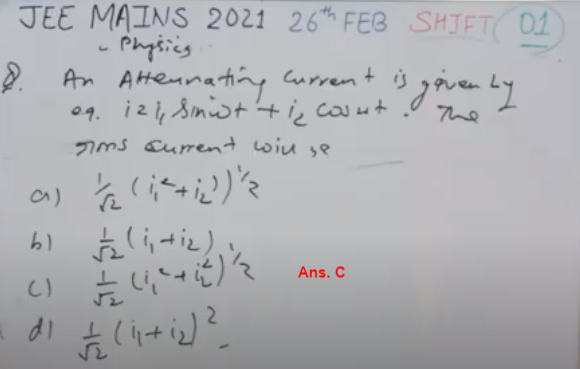 JEE MAINS 2021 26th FEB SHIFT 01
Physics
Q. An Alternating Current is given by
eq. i = i₁ sin ωt + i₂ cos ωt . The
rms current will be
a) 1/√2 (i₁² + i₂²)^1/2
b) 1/√2 (i₁ + i₂)
c) 1/√2 (i₁² + i₂²)^1/2
Ans. C
d) 1/√2 (i₁ + i₂)²